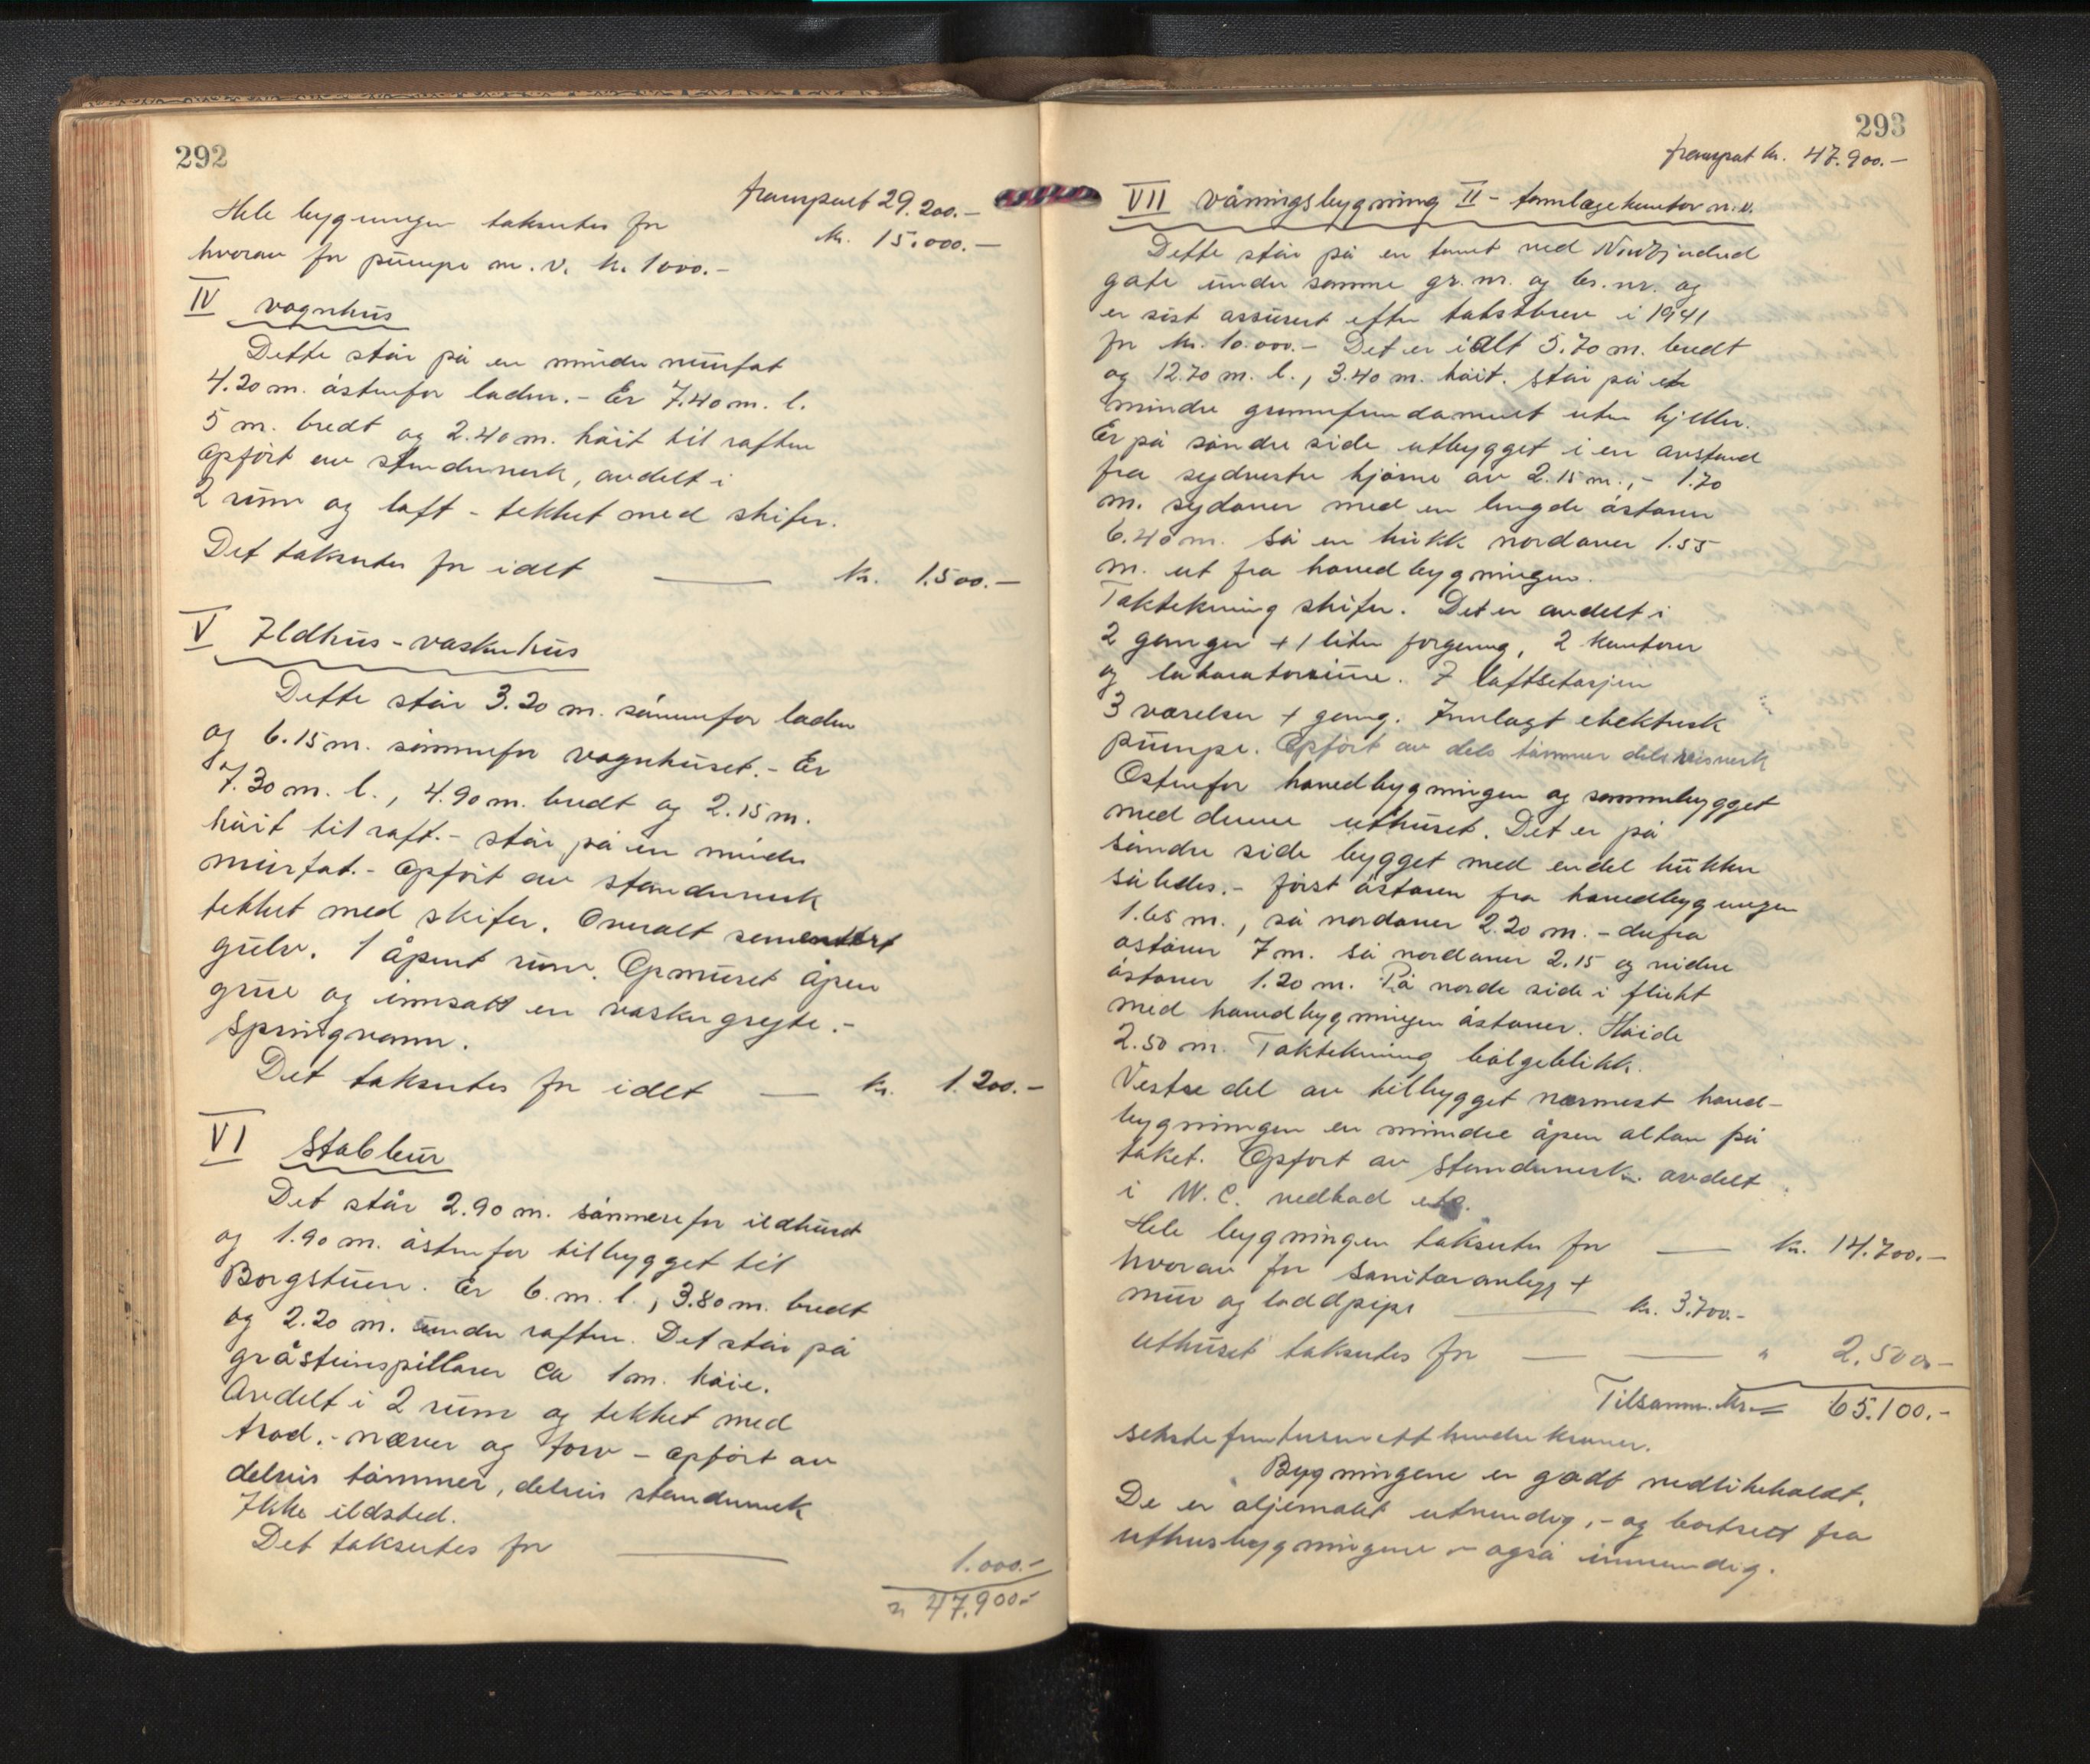 292
transport 29.200.-
Hele bygningen takseres for kr. 15.000.-
hvorav for pumpe m.v. kr. 1000.-
IV vognhus
Dette står på en mindre murfot
4.20 m. östenfor laden.- Er 7.40 m. l.
5 m. bredt og 2.40 m. höit til raften
Opfört av stenderverk, avdelt i
2 rum og loft - tekket med skifer.
Det takseres for i alt — kr. 1.500.-
V Ildhus - vaskerhus
Dette står 3.20 m. sönnenfor laden
og 6.15 m. sönnenfor vognhuset.- Er
7.30 m. l., 4.90 m. bredt og 2.15 m.
höit til raft.- står på en mindre
murfot.- Opfört av stenderverk
tekket med skifer. Overalt sementert
gulv. 1 åpent rum. Opmuret åpen
grue og innsatt en vaskergryte.-
Springvann.
Det takseres for i alt — kr. 1.200.-
VI Stabbur
Det står 2.90 m. sönnenfor ildhuset
og 1.90 m. östenfor tilbygget til
Borgstuen. Er 6. m. l., 3.80 m. bredt
og 2.20 m. under raften. Det står på
gråsteinspillarer ca 1 m. höie.
Avdelt i 2 rum og tekket med
trod.- næver og torv - opfört av
delvis tömmer, delvis stenderverk
Ikke ildsted.
Det takseres for — 1.000.-
kr 47.900.-
293
transport kr. 47.900.-
VII våningsbygning II - tannlægekontor m.v.
Dette står på en tomt ved
gate under samme gr. nr. og br. nr. og
er sist assurert efter takstbrev i 1941
for kr. 10.000.- Det er i alt 5.70 m. bredt
og 12.70 m. l., 3.40 m. höit. står på et
mindre grunnfundament uten kjeller.
Er på söndre side utbygget i en avstand
fra sydvestre hjörne av 2.15 m.,- 1.70
m. sydover med en lengde östover
6.40 m. så en hukk nordover 1.55
m. ut fra hovedbygningen.
Taktekning skifer. Det er avdelt i
2 ganger + 1 liten forgang, 2 kontorer
og laboratorium. I loftsetasjen
3 værelser + gang. Innlagt elektrisk
pumpe. Opfört av dels tömmer dels reisverk
Östenfor hovedbygningen og sammenbygget
med denne uthuset. Det er på
söndre side bygget med endel hukker
således.- först östover fra hovedbygningen
1.65 m., så nordover 2.20 m.- derfra
östover 7 m. så nordover 2.15 og videre
östover 1.20 m. På nordre side i flukt
med hovedbygningen östover. Höide
2.50 m. Taktekning bölgeblikk.
Vestre del av tilbygget nærmest hoved-
bygningen er mindre åpen altan på
taket. Opfört av stenderverk. avdelt
i W.C. vedbod etc.
Hele bygningen takseres for — kr. 14.700.-
hvorav for sanitæranlegg +
mur og loddpipe — kr. 3.700.-
uthuset takseres for — — " 2.500.-
Tilsamm. kr. 65.100.-
sekstifemtusenetthundre kroner.
Bygningene er godt vedlikeholdt.
De er oljemalt utvendig,- og bortsett fra
uthusbygningene - også innvendig.